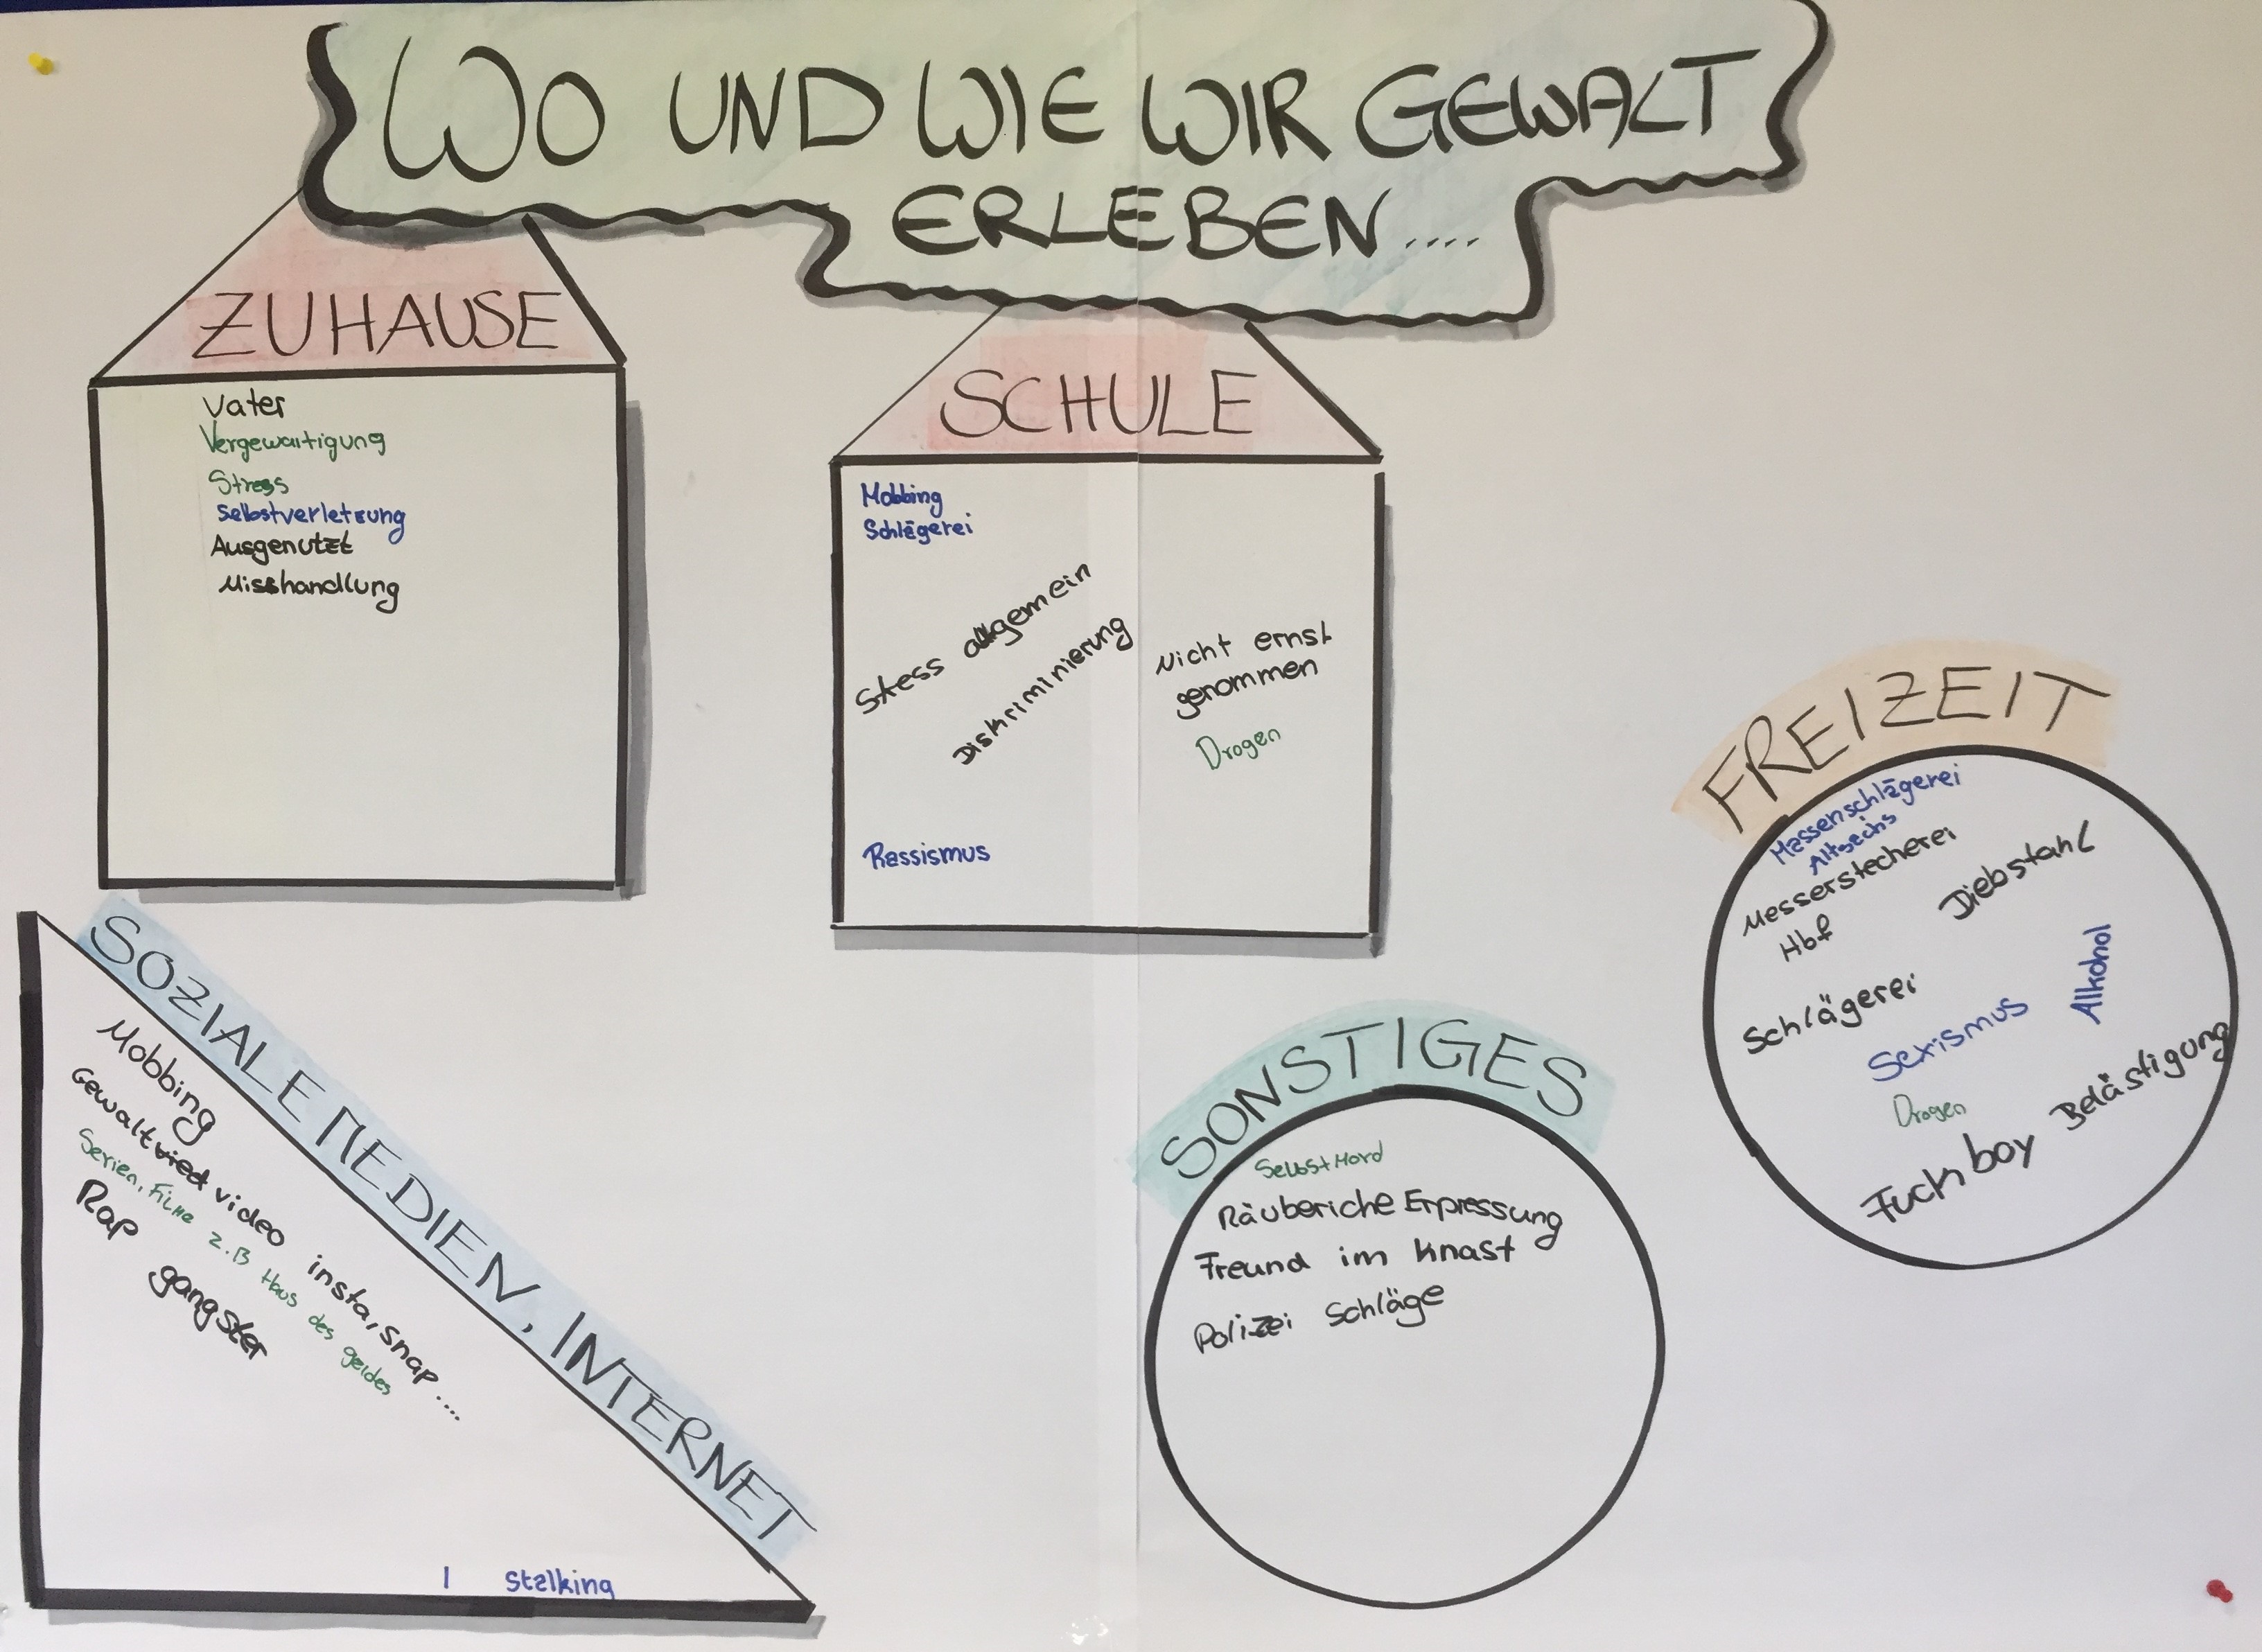 WO UND WIE WIR GEWALT
ERLEBEN ....
ZUHAUSE
Vater
Vergewaltigung
Stress
Selbstverletzung
Ausgenutzt
Misshandlung
SCHULE
Mobbing
Schlägerei
Stess allgemein
Diskriminierung
Nicht ernst
genommen
Drogen
Rassismus
FREIZEIT
Massenschlägerei
Messerstecherei
Hbf
Diebstahl
Schlägerei
Alkohol
Sexismus
Drogen
Belästigung
Fuckboy
SOZIALE MEDIEN, INTERNET
Mobbing
Gewaltvied video insta, snap ....
Serien, Filme z.B Haus des geldes
Rap
gangster
Stalking
SONSTIGES
Selbstmord
Räuberiche Erpressung
Freund im Knast
Polizei Schläge